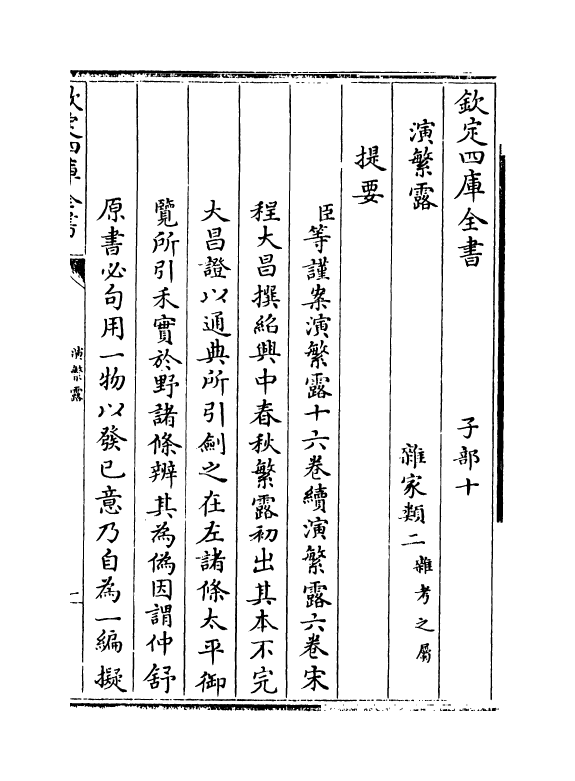 欽定四庫全書　子部十
演繁露　雜家類二雜考之屬
提要
臣等謹案演繁露十六卷續演繁露六卷宋
程大昌撰紹興中春秋繁露初出其本不完
大昌證以通典所引劍之在左諸條太平御
覽所引禾實於野諸條辨其為偽因謂仲舒
原書必句用一物以發已意乃自為一編擬
欽定四庫全書
演繁露
一